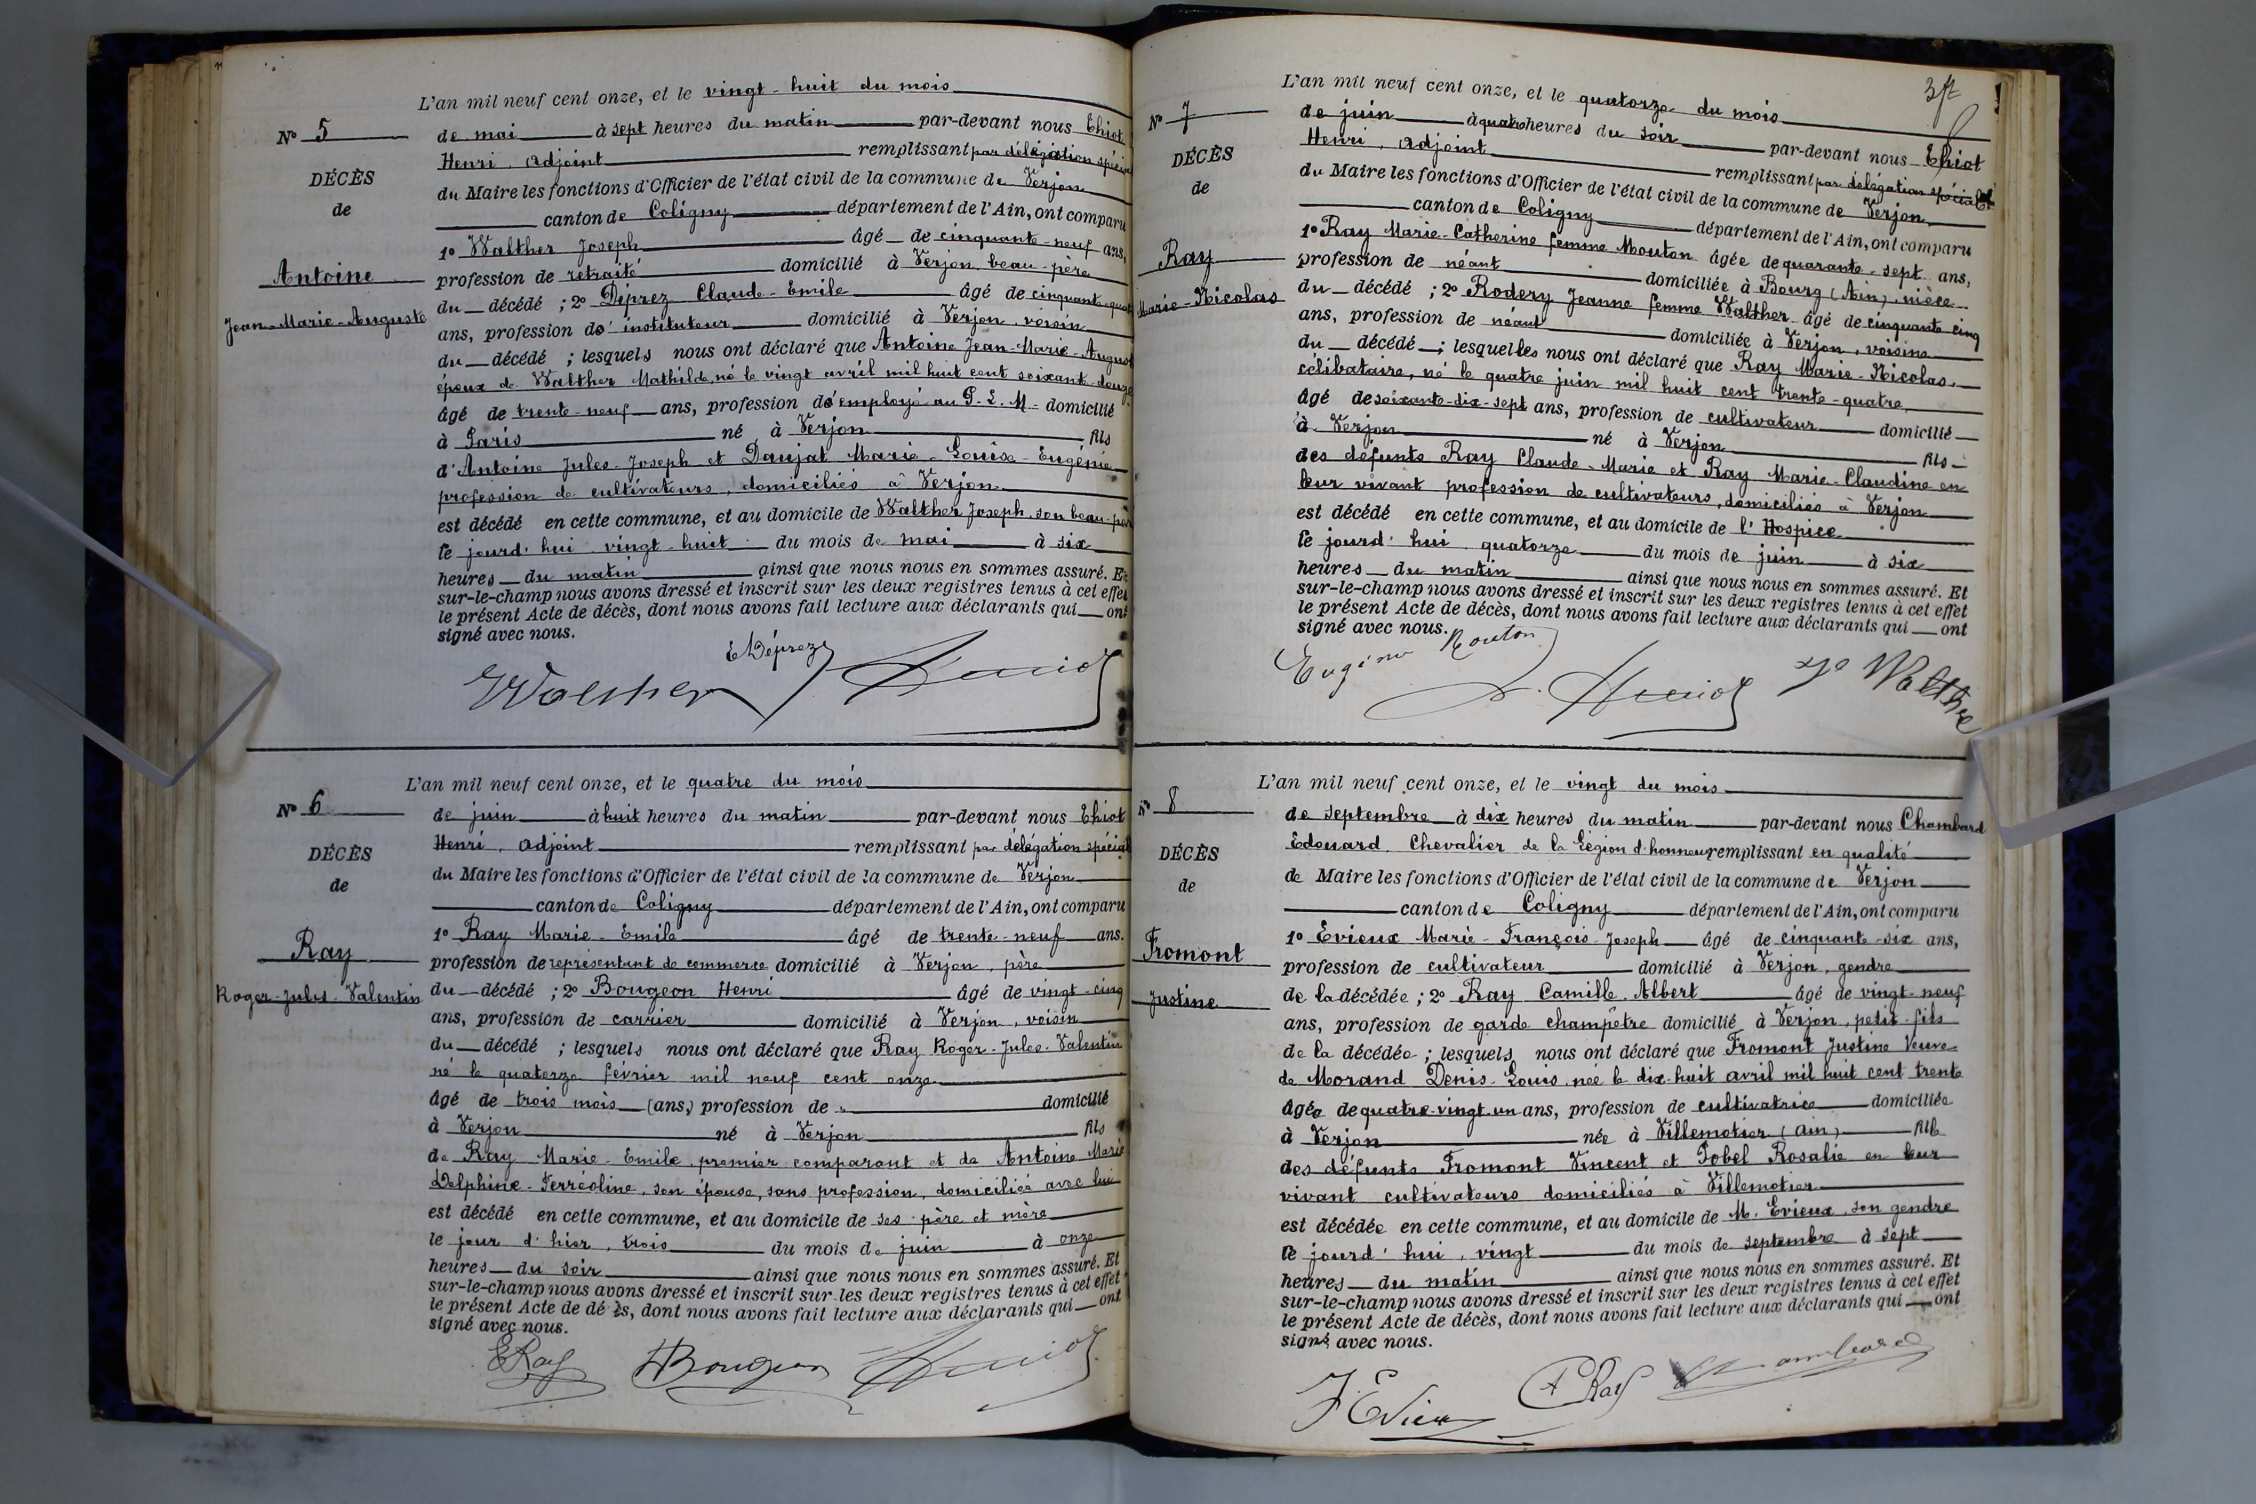 L'an mil neuf cent onze, et le vingt-huit du mois
Nº 5
de mai à sept heures du matin par-devant nous Thiot
Henri, adjoint remplissant par délégation spéciale
DÉCÈS
du Maire les fonctions d'Officier de l'état civil de la commune de Verjon
de
canton de Coligny département de l'Ain, ont comparu
1º Walther Joseph âgé de cinquante-neuf ans,
Antoine
profession de retraité domicilié à Verjon, beau-père
Jean-Marie-Auguste
du décédé ; 2º Déprez Claude-Emile âgé de cinquante-quatre
ans, profession d'instituteur domicilié à Verjon, voisin
du décédé ; lesquels nous ont déclaré que Antoine Jean-Marie-August
époux de Walther Mathilde, né le vingt avril mil huit cent soixante-douze
âgé de trente-neuf ans, profession d'employé au P. L. M. domicilié
à Paris né à Verjon fils
d'Antoine Jules-Joseph et Daujat Marie-Louise-Eugénie
profession de cultivateurs, domiciliés à Verjon
est décédé en cette commune, et au domicile de Walther Joseph, son beau-père
le jourd'hui vingt-huit du mois de mai à six
heures du matin ainsi que nous nous en sommes assuré. Et
sur-le-champ nous avons dressé et inscrit sur les deux registres tenus à cet effet
le présent Acte de décès, dont nous avons fait lecture aux déclarants qui ont
signé avec nous.
EDéprez
Walther
L'an mil neuf cent onze, et le quatre du mois
Nº 6
de juin à huit heures du matin par-devant nous Thiot
Henri, adjoint remplissant par délégation spéciale
DÉCÈS
du Maire les fonctions d'Officier de l'état civil de la commune de Verjon
de
canton de Coligny département de l'Ain, ont comparu
1º Ray Marie-Emile âgé de trente-neuf ans.
Ray
profession de représentant de commerce domicilié à Verjon, père
Roger-Jules-Valentin
du décédé ; 2º Bougeon Henri âgé de vingt-cinq
ans, profession de carrier domicilié à Verjon, voisin
du décédé ; lesquels nous ont déclaré que Ray Roger-Jules-Valentin
né le quatorze février mil neuf cent onze
âgé de trois mois (ans,) profession de domicilié
à Verjon né à Verjon fils
de Ray Marie-Emile, premier comparant et de Antoine Marie
Delphine-Ferréoline, son épouse, sans profession, domiciliée avec lui
est décédé en cette commune, et au domicile de ses père et mère
le jour d'hier, trois du mois de juin à onze
heures du soir ainsi que nous nous en sommes assuré. Et
sur-le-champ nous avons dressé et inscrit sur les deux registres tenus à cet effet
le présent Acte de dé ès, dont nous avons fait lecture aux déclarants qui ont
signé avec nous.
ERay HBougeon
L'an mil neuf cent onze, et le quatorze du mois
Nº 7
de juin à quatre heures du soir par-devant nous Thiot
Henri, adjoint remplissant par délégation spéciale
DÉCÈS
du Maire les fonctions d'Officier de l'état civil de la commune de Verjon
de
canton de Coligny département de l'Ain, ont comparu
1º Ray Marie-Catherine femme Mouton âgée de quarante-sept ans,
Ray
profession de néant domiciliée à Bourg (Ain), nièce
Marie-Nicolas
du décédé ; 2º Rodery Jeanne femme Walther âgé de cinquante cinq
ans, profession de néant domiciliée à Verjon, voisine
du décédé ; lesquelles nous ont déclaré que Ray Marie-Nicolas,
célibataire, né le quatre juin mil huit cent trente-quatre,
âgé de soixante-dix-sept ans, profession de cultivateur domicilié
à Verjon né à Verjon fils
des défunts Ray Claude-Marie et Ray Marie-Claudine en
leur vivant profession de cultivateurs, domiciliés à Verjon
est décédé en cette commune, et au domicile de l'Hospice
le jourd'hui quatorze du mois de juin à six
heures du matin ainsi que nous nous en sommes assuré. Et
sur-le-champ nous avons dressé et inscrit sur les deux registres tenus à cet effet
le présent Acte de décès, dont nous avons fait lecture aux déclarants qui ont
signé avec nous.
L'an mil neuf cent onze, et le vingt du mois
Nº 8
de septembre à dix heures du matin par-devant nous Chambard
Edouard, Chevalier de la Légion d'honneur remplissant en qualité
DÉCÈS
de Maire les fonctions d'Officier de l'état civil de la commune de Verjon
de
canton de Coligny département de l'Ain, ont comparu
1º Evieux Marie-François-Joseph âgé de cinquante-six ans,
Fromont
profession de cultivateur domicilié à Verjon, gendre
Justine
de la décédée ; 2º Ray Camille-Albert âgé de vingt-neuf
ans, profession de garde champêtre domicilié à Verjon, petit-fils
de la décédée ; lesquels nous ont déclaré que Fromont Justine Veuve
de Morand Denis-Louis, née le dix-huit avril mil huit cent trente
âgée de quatre-vingt-un ans, profession de cultivatrice domiciliée
à Verjon née à Villemotier (Ain) fille
des défunts Fromont Vincent et Gobel Rosalie en leur
vivant cultivateurs domiciliés à Villemotier
est décédée en cette commune, et au domicile de M. Evieux, son gendre
le jourd'hui, vingt du mois de septembre à sept
heures du matin ainsi que nous nous en sommes assuré. Et
sur-le-champ nous avons dressé et inscrit sur les deux registres tenus à cet effet
le présent Acte de décès, dont nous avons fait lecture aux déclarants qui ont
signé avec nous.